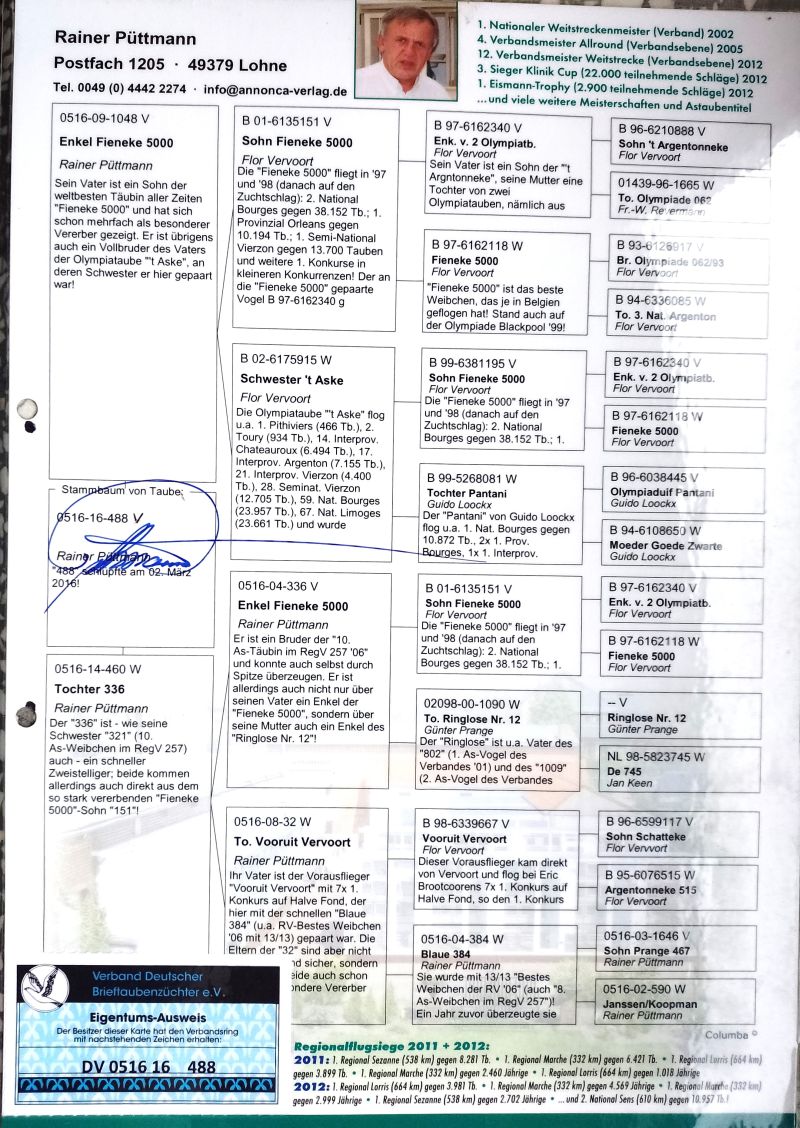 Rainer Püttmann
Postfach 1205 · 49379 Lohne
Tel. 0049 (0) 4442 2274 · info@annonca-verlag.de
1. Nationaler Weitstreckenmeister (Verband) 2002
4. Verbandsmeister Allround (Verbandsebene) 2005
12. Verbandsmeister Weitstrecke (Verbandsebene) 2012
3. Sieger Klinik Cup (22.000 teilnehmende Schläge) 2012
1. Eismann-Trophy (2.900 teilnehmende Schläge) 2012
...und viele weitere Meisterschaften und Astaubentitel
0516-09-1048 V
Enkel Fieneke 5000
Rainer Püttmann
Sein Vater ist ein Sohn der
weltbesten Täubin aller Zeiten
"Fieneke 5000" und hat sich
schon mehrfach als besonderer
Vererber gezeigt. Er ist übrigens
auch ein Vollbruder des Vaters
der Olympiataube "'t Aske", an
deren Schwester er hier gepaart
war!
Stammbaum von Taube:
0516-16-488 V
Rainer Püttmann
"488" schlüpfte am 02. März
2016!
0516-14-460 W
Tochter 336
Rainer Püttmann
Der "336" ist - wie seine
Schwester "321" (10.
As-Weibchen im RegV 257)
auch - ein schneller
Zweistelliger; beide kommen
allerdings auch direkt aus dem
so stark vererbenden "Fieneke
5000"-Sohn "151"!
B 01-6135151 V
Sohn Fieneke 5000
Flor Vervoort
Die "Fieneke 5000" fliegt in '97
und '98 (danach auf den
Zuchtschlag): 2. National
Bourges gegen 38.152 Tb.; 1.
Provinzial Orleans gegen
10.194 Tb.; 1. Semi-National
Vierzon gegen 13.700 Tauben
und weitere 1. Konkurse in
kleineren Konkurrenzen! Der an
die "Fieneke 5000" gepaarte
Vogel B 97-6162340 g
B 02-6175915 W
Schwester 't Aske
Flor Vervoort
Die Olympiataube "'t Aske" flog
u.a. 1. Pithiviers (466 Tb.), 2.
Toury (934 Tb.), 14. Interprov.
Chateauroux (6.494 Tb.), 17.
Interprov. Argenton (7.155 Tb.),
21. Interprov. Vierzon (4.400
Tb.), 28. Seminat. Vierzon
(12.705 Tb.), 59. Nat. Bourges
(23.957 Tb.), 67. Nat. Limoges
(23.661 Tb.) und wurde
0516-04-336 V
Enkel Fieneke 5000
Rainer Püttmann
Er ist ein Bruder der "10.
As-Täubin im RegV 257 '06"
und konnte auch selbst durch
Spitze überzeugen. Er ist
allerdings auch nicht nur über
seinen Vater ein Enkel der
"Fieneke 5000", sondern über
seine Mutter auch ein Enkel des
"Ringlose Nr. 12"!
0516-08-32 W
To. Vooruit Vervoort
Rainer Püttmann
Ihr Vater ist der Vorausflieger
"Vooruit Vervoort" mit 7x 1.
Konkurs auf Halve Fond, der
hier mit der schnellen "Blaue
384" (u.a. RV-Bestes Weibchen
'06 mit 13/13) gepaart war. Die
Eltern der "32" sind aber nicht
d sicher, sondern
eide auch schon
ondere Vererber
B 97-6162340 V
Enk. v. 2 Olympiatb.
Flor Vervoort
Sein Vater ist ein Sohn der "'t
Argntonneke", seine Mutter eine
Tochter von zwei
Olympiatauben, nämlich aus
B 97-6162118 W
Fieneke 5000
Flor Vervoort
"Fieneke 5000" ist das beste
Weibchen, das je in Belgien
geflogen hat! Stand auch auf
der Olympiade Blackpool '99!
B 99-6381195 V
Sohn Fieneke 5000
Flor Vervoort
Die "Fieneke 5000" fliegt in '97
und '98 (danach auf den
Zuchtschlag): 2. National
Bourges gegen 38.152 Tb.; 1.
B 99-5268081 W
Tochter Pantani
Guido Loockx
Der "Pantani" von Guido Loockx
flog u.a. 1. Nat. Bourges gegen
10.872 Tb., 2x 1. Prov.
Bourges, 1x 1. Interprov.
B 01-6135151 V
Sohn Fieneke 5000
Flor Vervoort
Die "Fieneke 5000" fliegt in '97
und '98 (danach auf den
Zuchtschlag): 2. National
Bourges gegen 38.152 Tb.; 1.
02098-00-1090 W
To. Ringlose Nr. 12
Günter Prange
Der "Ringlose" ist u.a. Vater des
"802" (1. As-Vogel des
Verbandes '01) und des "1009"
(2. As-Vogel des Verbandes
B 98-6339667 V
Vooruit Vervoort
Flor Vervoort
Dieser Vorausflieger kam direkt
von Vervoort und flog bei Eric
Brootcoorens 7x 1. Konkurs auf
Halve Fond, so den 1. Konkurs
0516-04-384 W
Blaue 384
Rainer Püttmann
Sie wurde mit 13/13 "Bestes
Weibchen der RV '06" (auch "8.
As-Weibchen im RegV 257")!
Ein Jahr zuvor überzeugte sie
B 96-6210888 V
Sohn 't Argentonneke
Flor Vervoort
01439-96-1665 W
To. Olympiade 062
Fr.-W. Revermann
B 93-6126917 V
Br. Olympiade 062/93
Flor Vervoort
B 94-6336085 W
To. 3. Nat. Argenton
Flor Vervoort
B 97-6162340 V
Enk. v. 2 Olympiatb.
Flor Vervoort
B 97-6162118 W
Fieneke 5000
Flor Vervoort
B 96-6038445 V
Olympiaduif Pantani
Guido Loockx
B 94-6108650 W
Moeder Goede Zwarte
Guido Loockx
B 97-6162340 V
Enk. v. 2 Olympiatb.
Flor Vervoort
B 97-6162118 W
Fieneke 5000
Flor Vervoort
-- V
Ringlose Nr. 12
Günter Prange
NL 98-5823745 W
De 745
Jan Keen
B 96-6599117 V
Sohn Schatteke
Flor Vervvort
B 95-6076515 W
Argentonneke 515
Flor Vervoort
0516-03-1646 V
Sohn Prange 467
Rainer Püttmann
0516-02-590 W
Janssen/Koopman
Rainer Püttmann
Columba ©
Verband Deutscher
Brieftaubenzüchter e.V.
Eigentums-Ausweis
Der Besitzer dieser Karte hat den Verbandsring
mit nachstehenden Zeichen erhalten:
DV 0516 16 488
Regionalflugsiege 2011 + 2012:
2011: 1. Regional Sezanne (538 km) gegen 8.281 Tb. • 1. Regional Marche (332 km) gegen 6.421 Tb. • 1. Regional Lorris (664 km)
gegen 3.899 Tb. • 1. Regional Marche (332 km) gegen 2.460 Jährige • 1. Regional Lorris (664 km) gegen 1.018 Jährige
2012: 1. Regional Lorris (664 km) gegen 3.981 Tb. • 1. Regional Marche (332 km) gegen 4.569 Jährige • 1. Regional Marche (332 km)
gegen 2.999 Jährige • 1. Regional Sezanne (538 km) gegen 2.702 Jährige • ... und 2. National Sens (610 km) gegen 10.957 Tb.!